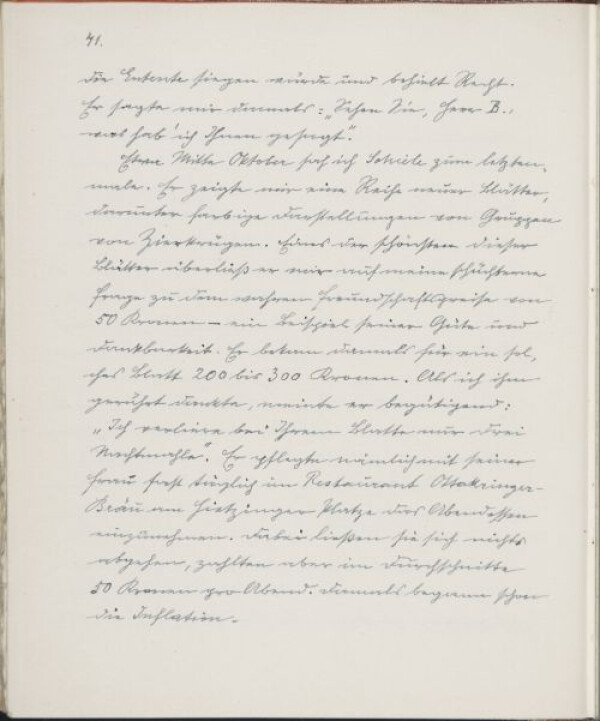 41.
die Entente siegen würde und behielt Recht.
Er sagte mir damals: „Sehen Sie, Herr B.,
was hab' ich Ihnen gesagt".
Etwa Mitte Oktober sah ich Schiele zum letzten-
male. Er zeigte mir eine Reihe neuer Blätter,
darunter farbige Darstellungen von Gruppen
von Zierkrügen. Eines der schönsten dieser
Blätter überließ er mir auf meine schüchterne
Frage zu dem wahren Freundschaftspreise von
50 Kronen – ein Beispiel seiner Güte und
Dankbarkeit. Er bekam damals für ein sol-
ches Blatt 200 bis 300 Kronen. Als ich ihm
gerührt dankte, meinte er begütigend:
„Ich verliere bei Ihrem Blatte nur drei
Nachtmahle". Er pflegte nämlich mit seiner
Frau fast täglich im Restaurant Ottakringer-
Bräu am Hietzinger Platze das Abendessen
einzunehmen. Dabei ließen sie sich nichts
abgehen, zahlten aber im Durchschnitte
50 Kronen pro Abend. Damals begann schon
die Inflation.